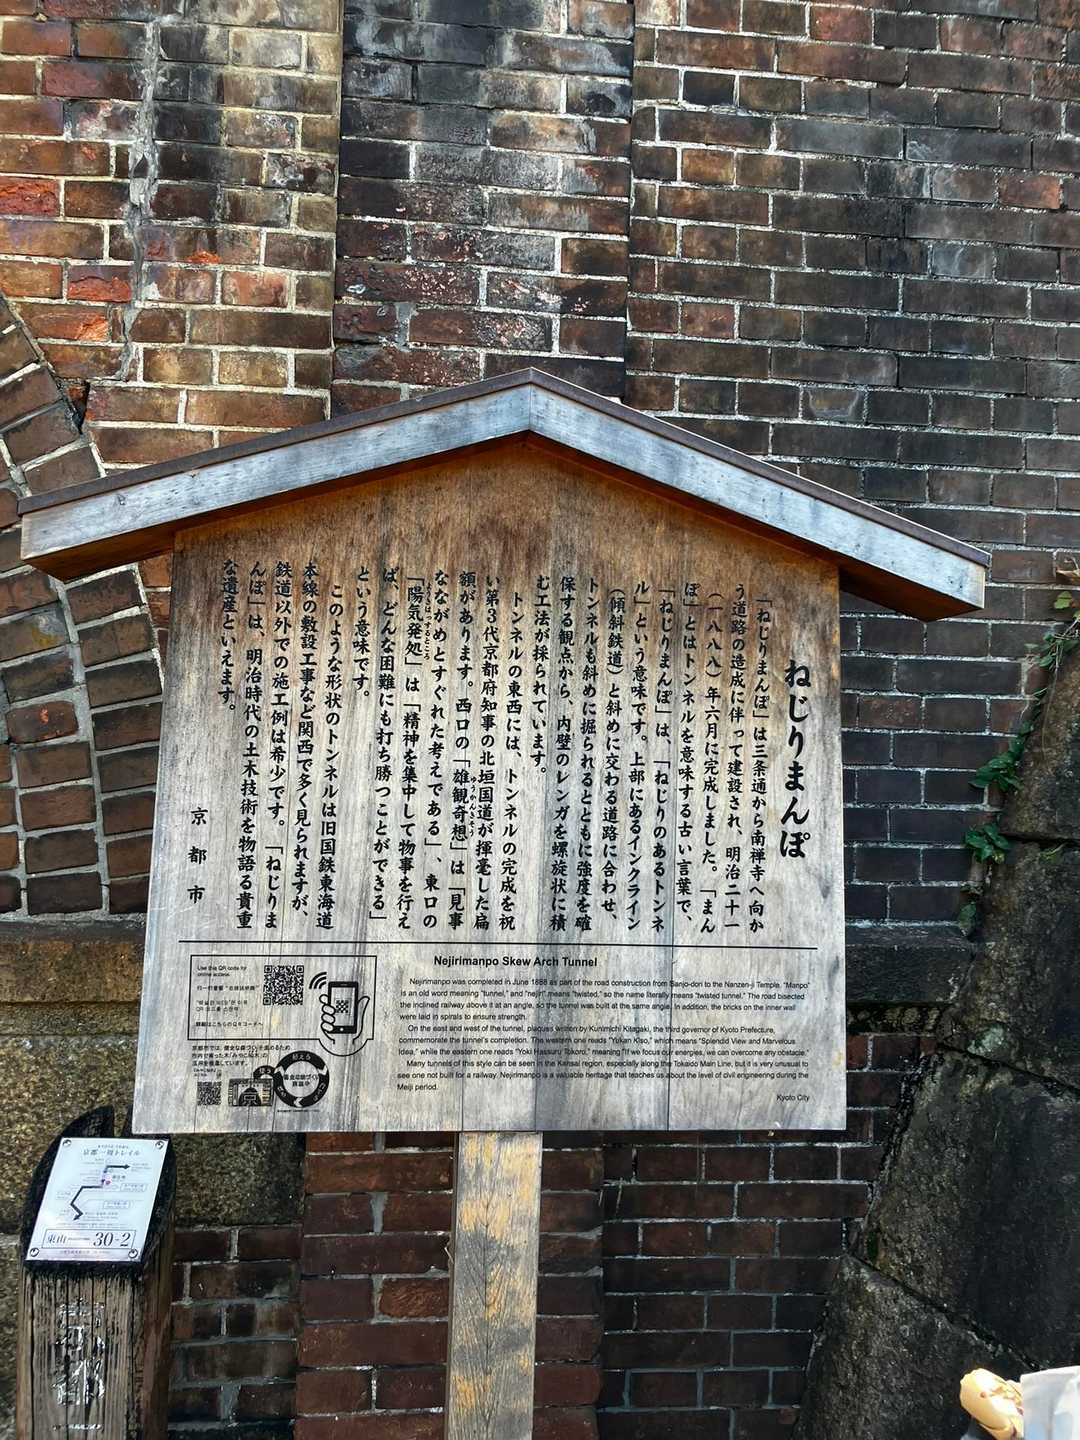 ねじりまんぽ
「ねじりまんぽ」は三条通から南禅寺へ向か
う道路の造成に伴って建設され、明治二十一
（一八八八）年六月に完成しました。「まん
ぽ」とはトンネルを意味する古い言葉で、
「ねじりまんぽ」は、「ねじりのあるトンネ
ル」という意味です。上部にあるインクライン
（傾斜鉄道）と斜めに交わる道路に合わせ、
トンネルも斜めに掘られるとともに強度を確
保する観点から、内壁のレンガを螺旋状に積
む工法が採られています。
トンネルの東西には、トンネルの完成を祝
い第３代京都府知事の北垣国道が揮毫した扁
額があります。西口の「雄観奇想」は「見事
ゆうかんきそう
なながめとすぐれた考えである」、東口の
「陽気発処」は「精神を集中して物事を行え
ようきはっするところ
ば、どんな困難にも打ち勝つことができる」
という意味です。
このような形状のトンネルは旧国鉄東海道
本線の敷設工事など関西で多く見られますが、
鉄道以外での施工例は希少です。「ねじりま
んぽ」は、明治時代の土木技術を物語る貴重
な遺産といえます。
京都市
Nejirimanpo Skew Arch Tunnel
Nejirimanpo was completed in June 1888 as part of the road construction from Sanjo-dori to the Nanzen-ji Temple. "Manpo"
is an old word meaning "tunnel," and "nejiri" means "twisted," so the name literally means "twisted tunnel." The road bisected
the inclined railway above it at an angle, so the tunnel was built at the same angle. In addition, the bricks on the inner wall
were laid in spirals to ensure strength.
On the east and west of the tunnel, plaques written by Kunimichi Kitagaki, the third governor of Kyoto Prefecture,
commemorate the tunnel's completion. The western one reads "Yukan Kiso," which means "Splendid View and Marvelous
Idea," while the eastern one reads "Yoki Hassuru Tokoro," meaning "If we focus our energies, we can overcome any obstacle."
Many tunnels of this style can be seen in the Kansai region, especially along the Tokaido Main Line, but it is very unusual to
see one not built for a railway. Nejirimanpo is a valuable heritage that teaches us about the level of civil engineering during the
Meiji period.
Kyoto City
Use this QR code for
online access.
詳細はこちらのQRコードへ
京都市では、健全な森づくりを進めるため、
市内で育った木「みやこ杣木」の
活用を推進しています。
京都一周トレイル
東山 30-2